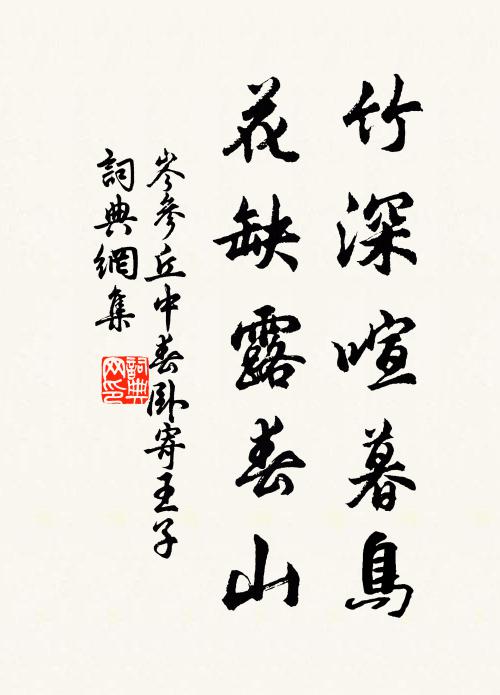 竹深喧暮鳥
花缺露春山
岑參丘中春臥寄王子
詞典網集
詞典网印